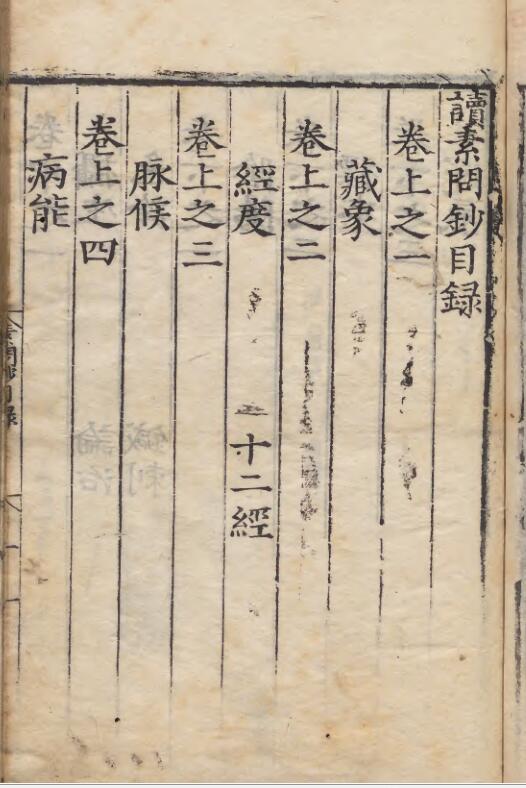 讀素問鈔目録
卷上之一
藏象
卷上之二
經度 十二經
卷上之三
脉候
卷上之四
病能